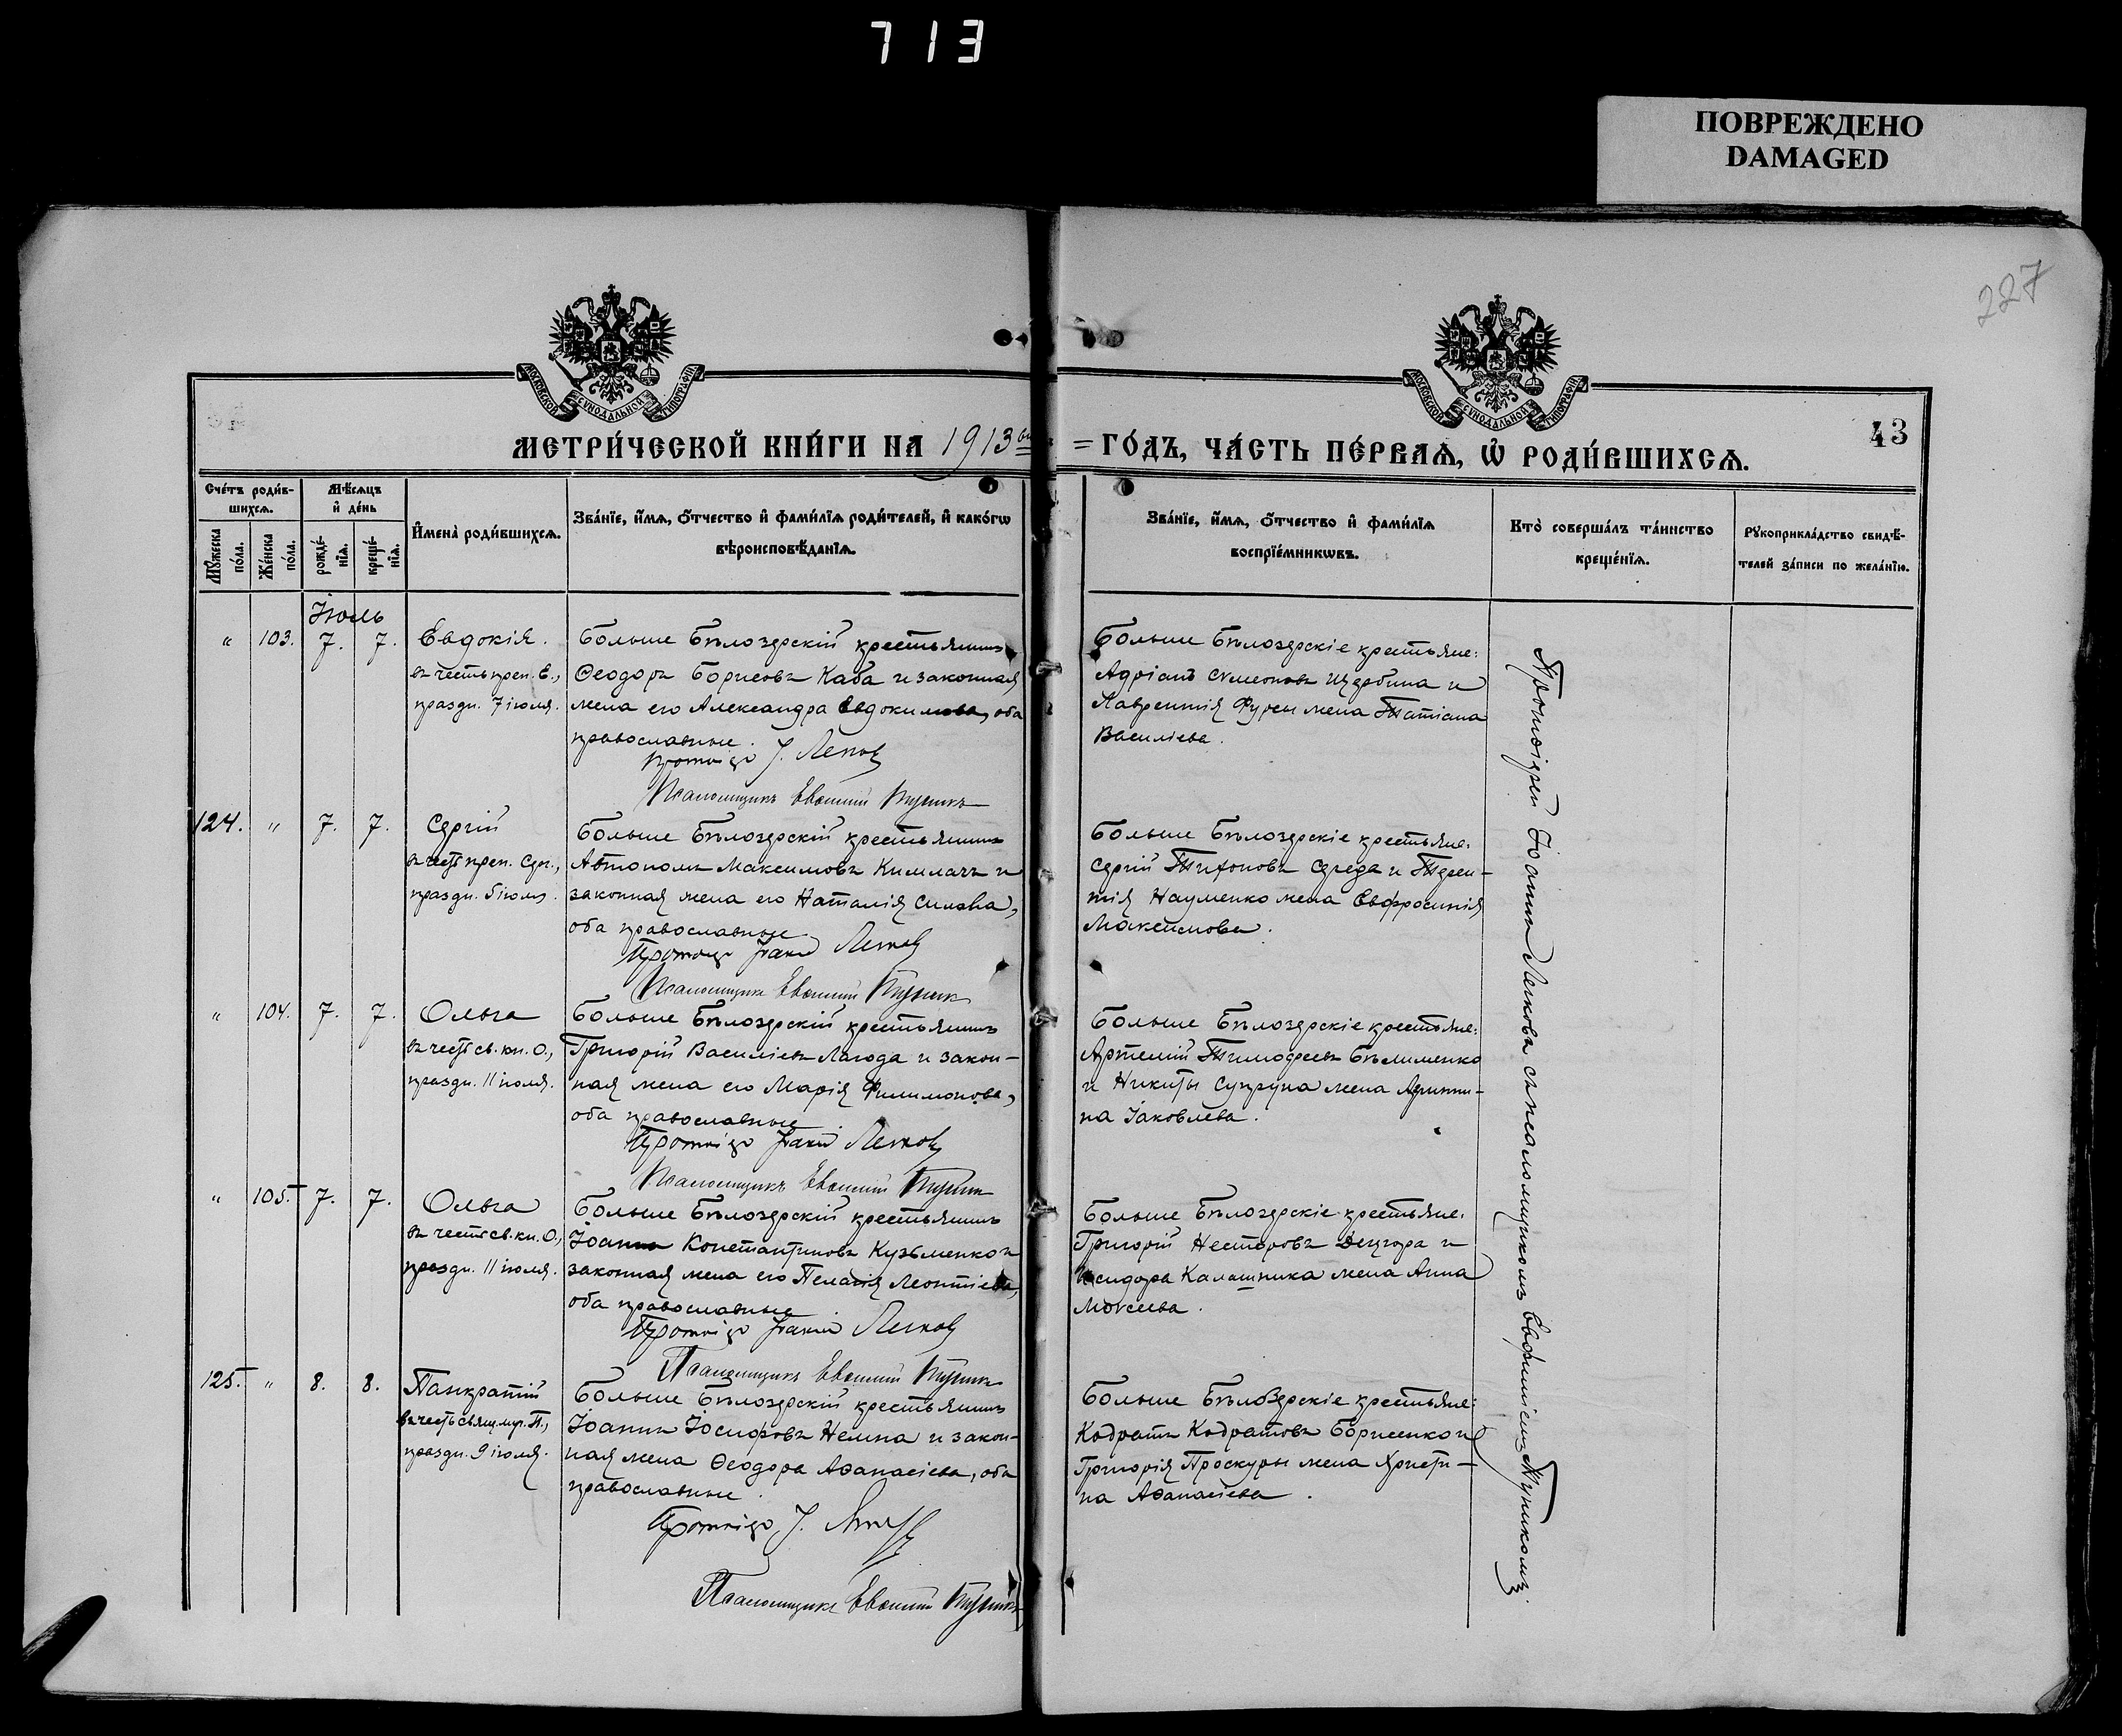 713
ПОВРЕЖДЕНО
DAMAGED
227
МОСКОВСКОЙ СѴНОДАЛЬНОЙ ТИПОГРАФІИ
МОСКОВСКОЙ СѴНОДАЛЬНОЙ ТИПОГРАФІИ
43
МЕТРИ́ЧЕСКОЙ КНИ́ГИ НА 1913 = ГО́ДЪ, ЧА́СТЬ ПЕ́РВАѦ, Ѡ҆ РОДИ́ВШИХСѦ.
Сче́тъ роди́в-
шихсѧ.
Мꙋ́жеска по́ла.
Же́нска по́ла.
Мѣ́сѧцъ и҆ де́нь
рожде́-нїѧ.
креще́-нїѧ.
И҆мена̀ роди́вшихсѧ.
Зва́нїе, и҆́мѧ, ѻ҆́тчество и҆ фами́лїѧ роди́телей, и҆ како́гѡ
вѣроисповѣ́данїѧ.
Зва́нїе, и҆́мѧ, ѻ҆́тчество и҆ фами́лїѧ
воспрїе́мникѡвъ.
Кто̀ соверша́лъ та́инство
креще́нїѧ.
Рꙋкоприкла́дство свидѣ́-
телей за́писи по жела́нїю.
Іюль
" 103. 7. 7.
Евдокія.
въ честь преп. Е.,
праздн. 7 іюля.
Больше Бѣлозерскій крестьянинъ
Ѳеодоръ Борисовъ Каба и законная
жена его Александра Евдокимова, оба
православные.
Протоіер І. Легков
Псаломщикъ Евѳимій Пушик
Больше Бѣлозерскіе крестьяне:
Адріанъ Сѵмеоновъ Щербина и
Лаврентія Фурсы жена Татіана
Василіева.
124. " 7. 7.
Сергій
въ честь преп. Серг.,
праздн. 5 іюля.
Больше Бѣлозерскій крестьянинъ
Автономъ Максимовъ Кимлачъ и
законная жена его Наталія Силова,
оба православные
Протоіер Іоаннъ Легков
Псаломщикъ Евѳимій
Больше Бѣлозерскіе крестьяне:
Сергій Тихоновъ Середа и Терен-
тія Науменко жена Евфросинія
Максимова.
" 104. 7. 7.
Ольга
въ честь св. кн. О.,
праздн. 11 іюля.
Больше Бѣлозерскій крестьянинъ
Григорій Василіевъ Лагода и закон-
ная жена его Марія Филимонова,
оба православные.
Протоіер Іоаннъ Легков
Псаломщикъ Евѳимій
Больше Бѣлозерскіе крестьяне:
Артемій Тимофеевъ Бѣлименко
и Никиты Супруна жена Агриппи-
на Іаковлева.
" 105. 7. 7.
Ольга
въ честь св. кн. О.,
праздн. 11 іюля.
Больше Бѣлозерскій крестьянинъ
Іоаннъ Константиновъ Кузьменко и
законная жена его Пелагія Леонтіева,
оба православные.
Протоіер Іоаннъ Легков
Псаломщикъ Евѳимій
Больше Бѣлозерскіе крестьяне:
Григорій Несторовъ и
Исидора Калашника жена Анна
Моѵсеева.
125. " 8. 8.
Панкратій
въ честь свящ. муч. П.,
праздн. 9 іюля.
Больше Бѣлозерскій крестьянинъ
Іоаннъ Іосифовъ и закон-
ная жена Ѳеодора Аѳанасіева, оба
православные.
Протоіер І.
Псаломщикъ Евѳимій
Больше Бѣлозерскіе крестьяне:
Кодратъ Кодратовъ Борисенко и
Григорія Проскуры жена Христи-
на Аѳанасіева.
Протоіерей Іоаннъ Легковъ съ псаломщикомъ Евфиміемъ